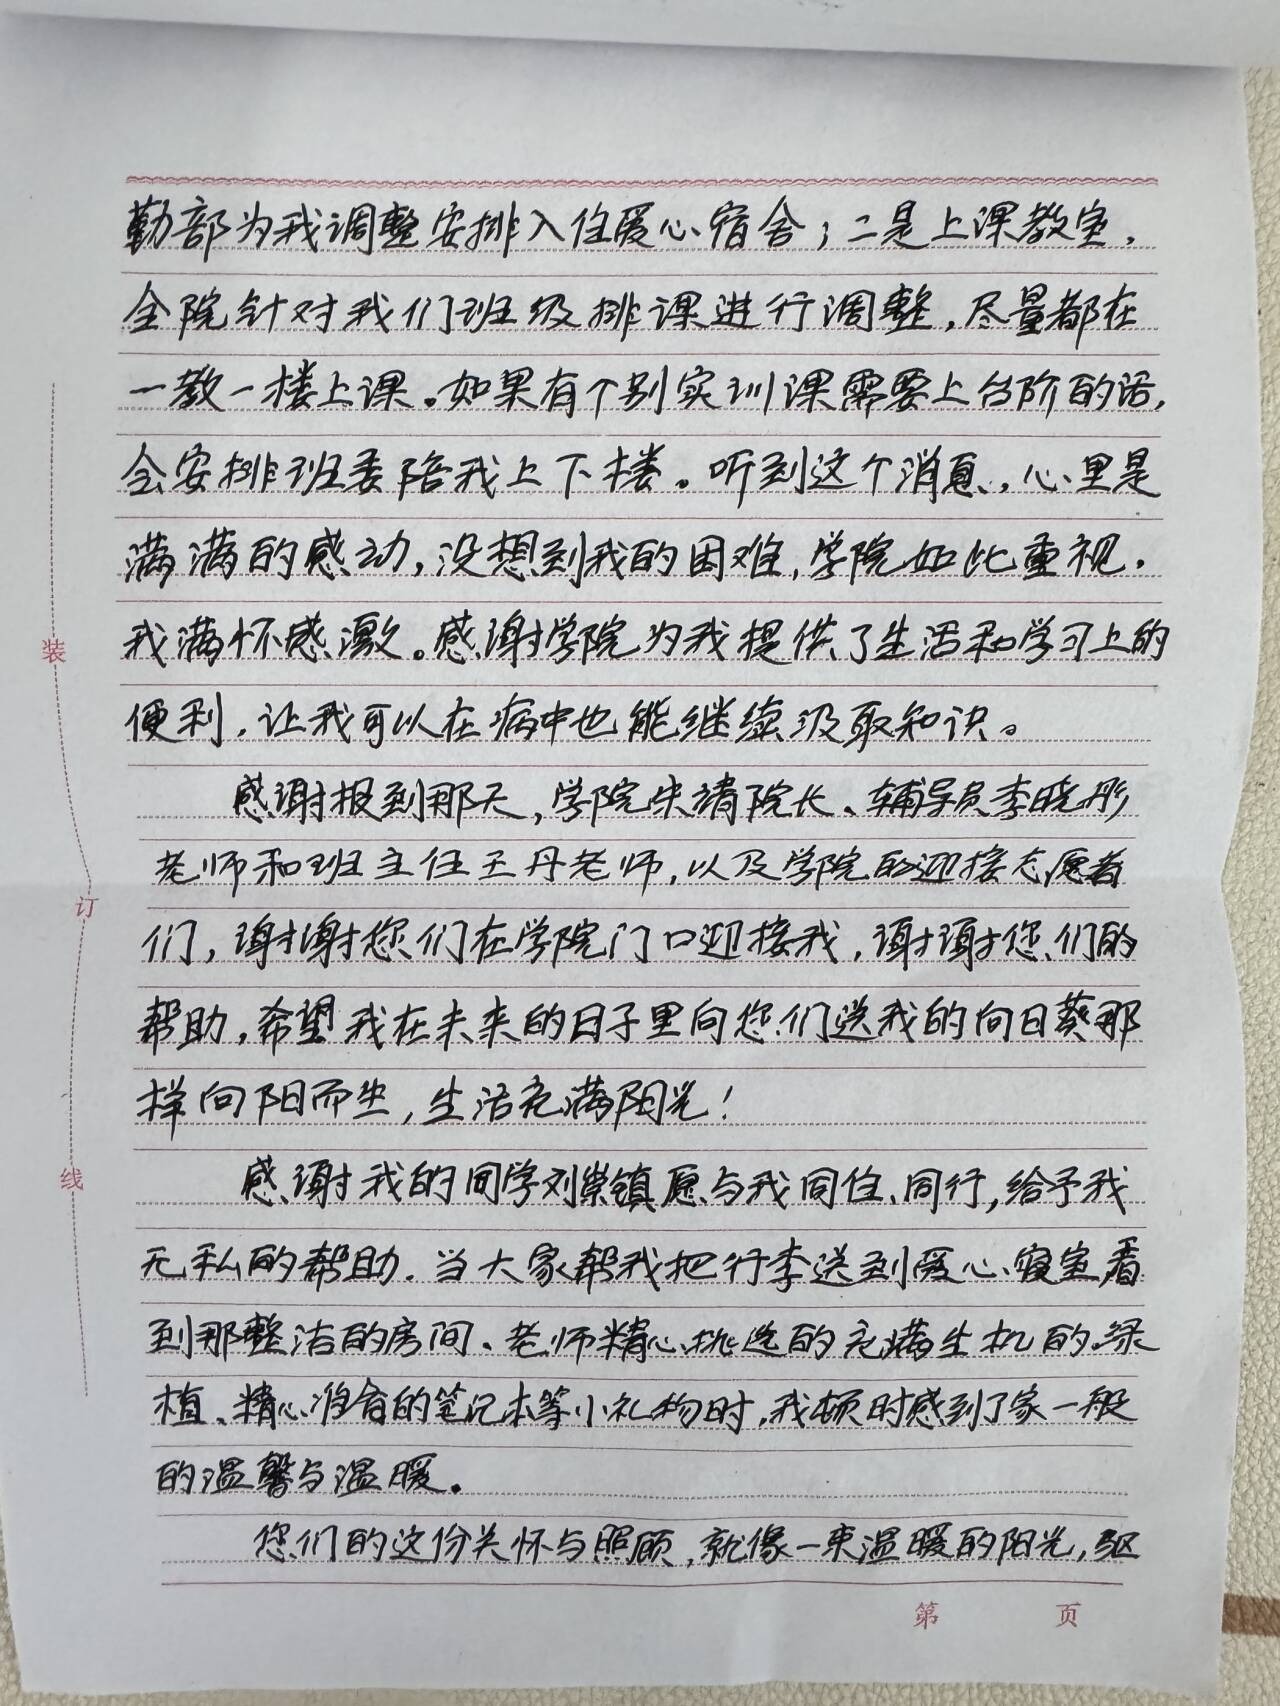 勤部为我调整安排入住爱心宿舍；二是上课教室，
全院针对我们班级排课进行调整，尽量都在
一教一楼上课。如果有个别实训课需要上台阶的话，
会安排班委陪我上下楼。听到这个消息，心里是
满满的感动，没想到我的困难，学院如此重视，
我满怀感激。感谢学院为我提供了生活和学习上的
便利，让我可以在病中也能继续汲取知识。
感谢报到那天，学院朱靖院长、辅导员李晓彤
老师和班主任王丹老师，以及学院的迎接志愿者
们，谢谢您们在学院门口迎接我，谢谢您们的
帮助，希望我在未来的日子里向您们送我的向日葵那
样向阳而生，生活充满阳光！
感谢我的同学刘崇镇愿与我同住、同行，给予我
无私的帮助。当大家帮我把行李送到爱心寝室，看
到那整洁的房间、老师精心挑选的充满生机的绿
植、精心准备的笔记本等小礼物时，我顿时感到了家一般
的温馨与温暖。
您们的这份关怀与照顾，就像一束温暖的阳光，驱
装
订
线
第 页